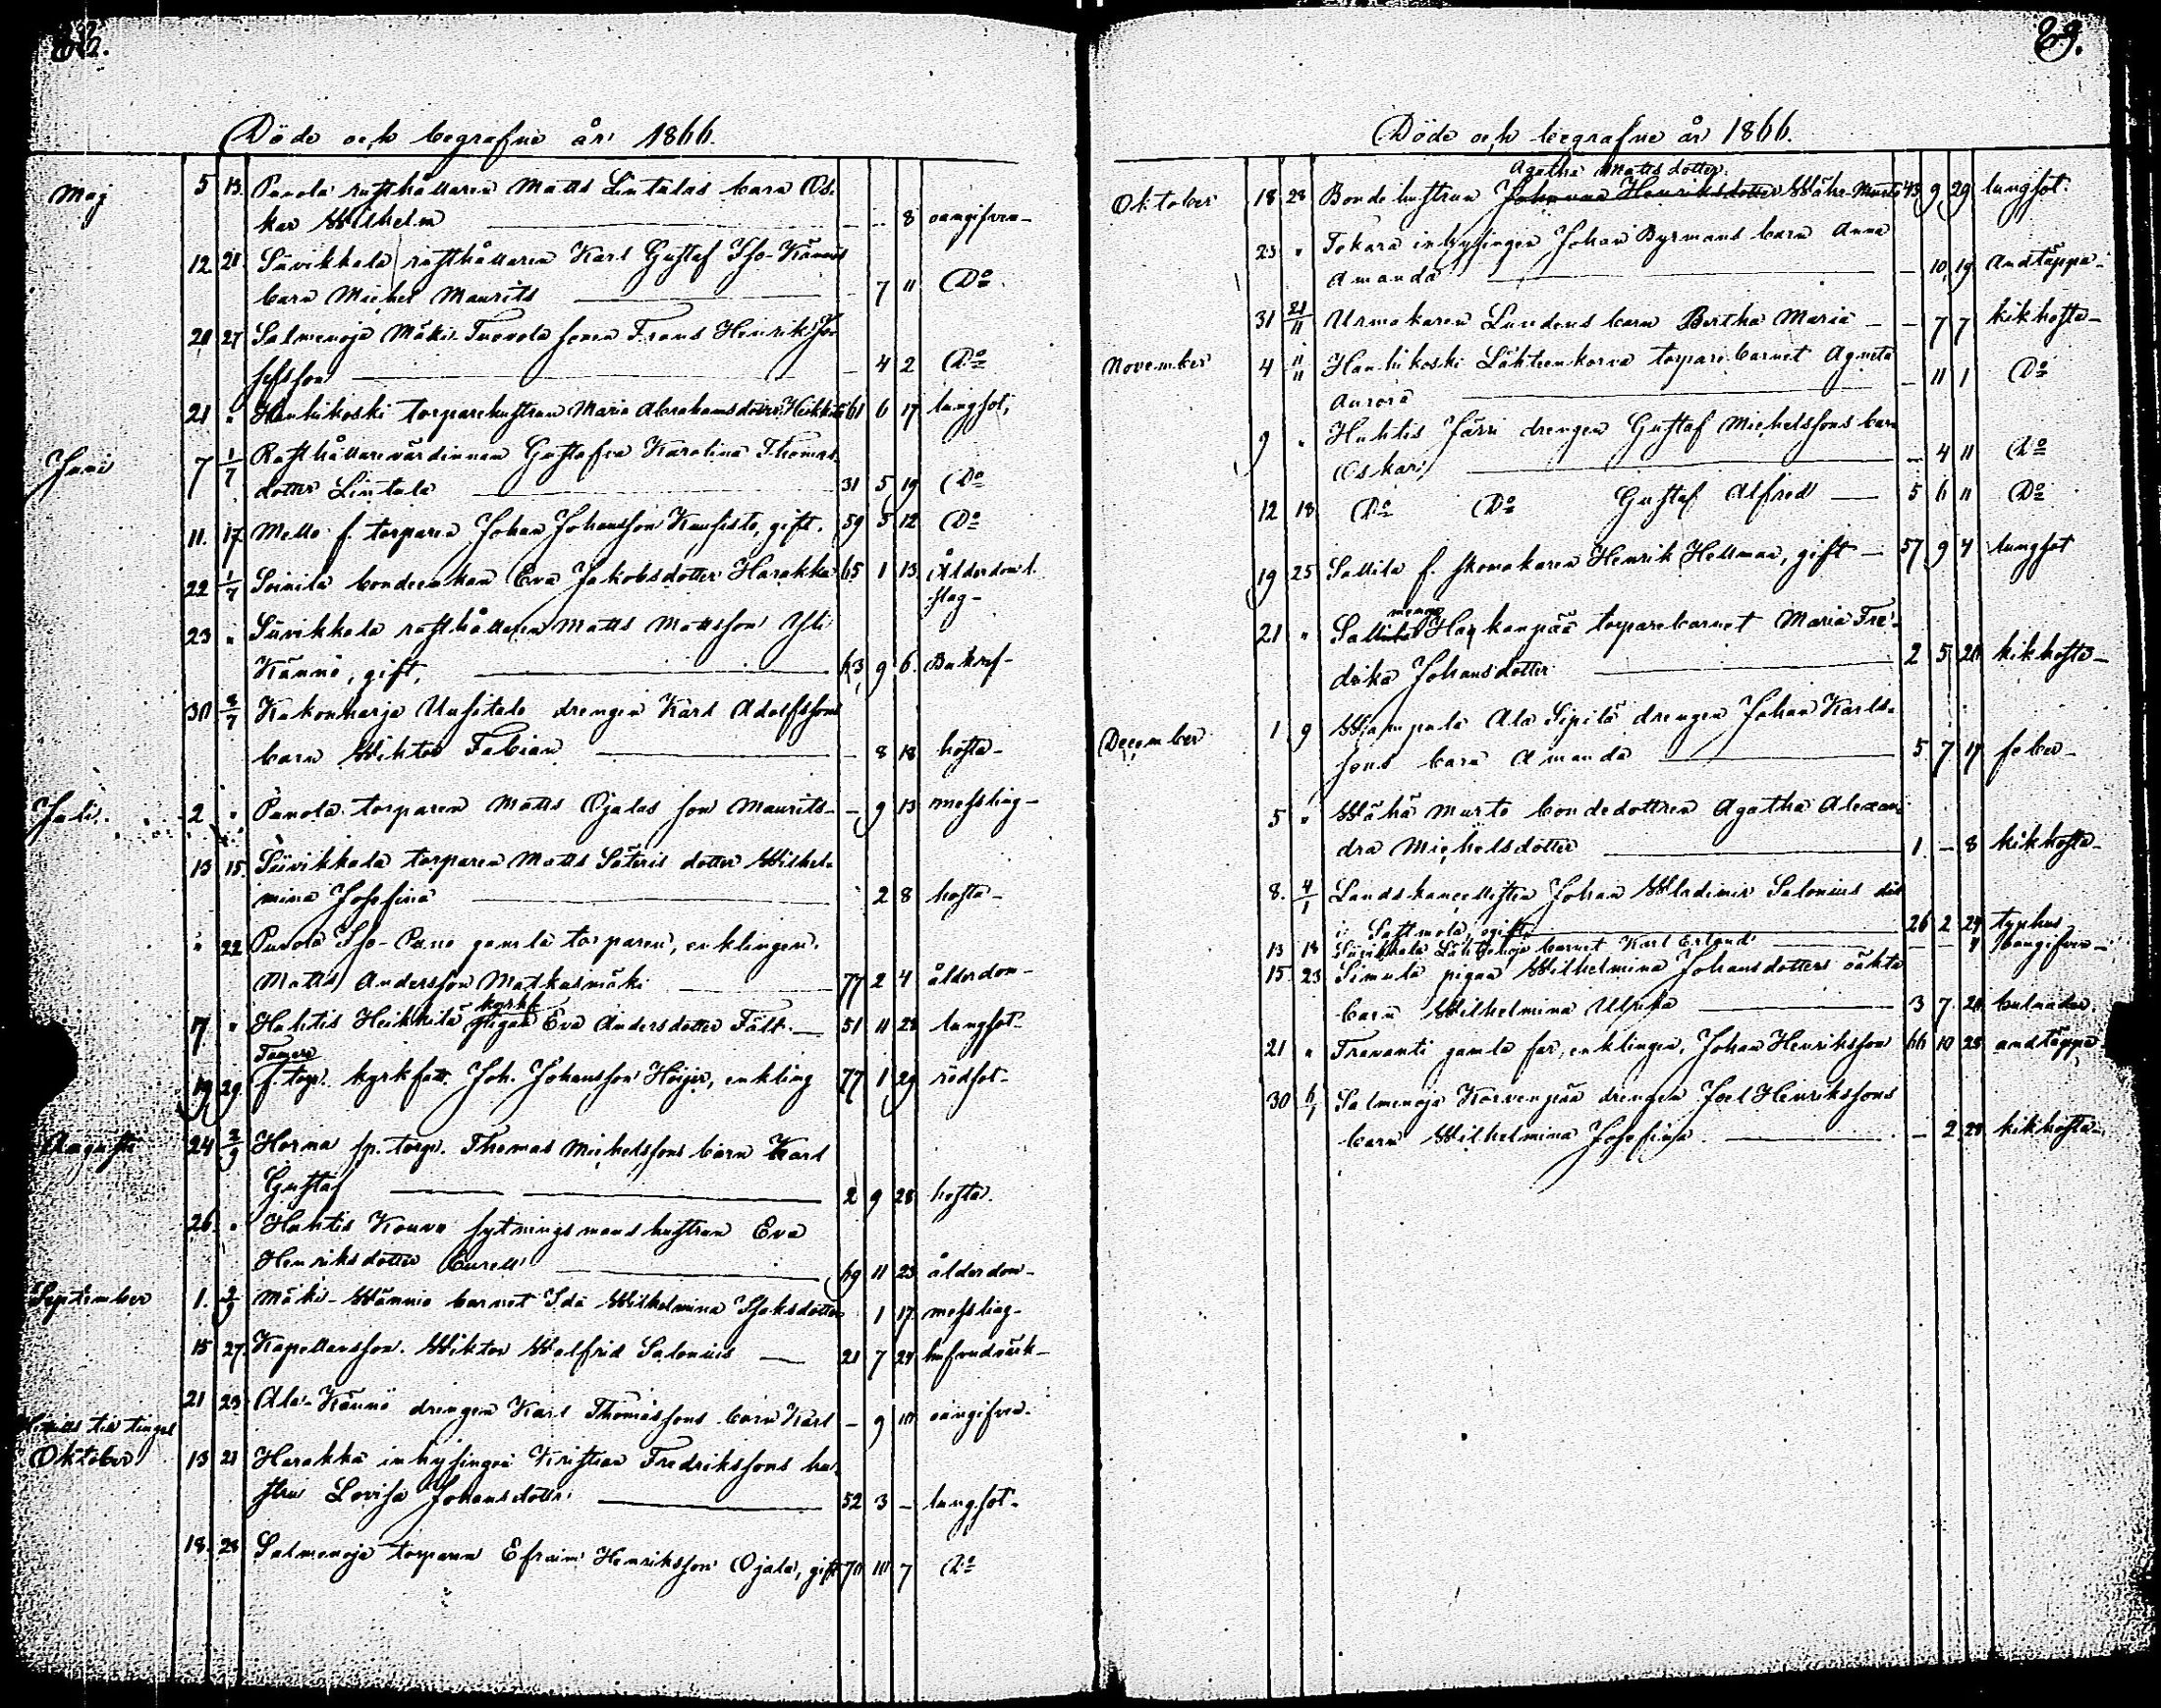 Döde och begrafne år 1866.
Maj 5 13. Punola rusthållaren Matts Lintalas barn Os-
kar Wilhelm — - - 8 oangifven
12 21. Siivikkala rusthållaren Karl Gustaf Iso-Kännös
barn Michel Maurits — - 7 11 Do
20 27 Salmenoja Mäki-Tuovola sonen Frans Henrik Jo-
sefsson — - 4 2 Do
21 " Hanhikoski torparehustrun Maria Abrahamsdotter Heikkilä 61 6 17 lungsot,
Juni 7 1/7 Rusthållarevärdinnan Gustafva Karolina Thomas-
dotter Lintala — 31 5 19 Do
11. 17. Mello f. torparen Johan Johansson Kanfisto, gift. 59 5 12 Do
22 1/7 Soinila bondeenkan Eva Jakobsdotter Harakka 65 1 13 Ålderdoml.
slag-
23 " Siivikkala rusthållaren Matts Mattsson Yli
Kännö, gift, — 63 9 6.
30 8/7 Kakonharja Uusitalo drengen Karl Adolfssons
barn Wiktor Fabian — - 8 18 hosta-
Juli. 2 " Punola torparen Matts Ojalas son Maurits - - 9 13 messling-
13 15. Siivikkala torparen Matts Säteris dotter Wilhel-
mina Josefina — 2 8 hosta-
" 22 Punola Iso-Pano gamla torparen, enklingen,
Matts Andersson Matkusmäki — 77 2 4 ålderdom-
kyrkf.
17 " Huhtis Heikkilä pigan Eva Andersdotter Fält. — 51 11 22 lungsot-
19 29. f. torp. kyrkfatt. Joh. Johansson Höijer, enkling 77 1 29 rödsot-
Augusti 24 2/9 Horma sp. torp. Thomas Michelssons barn Karl
Gustaf — 2 9 28 hosta.
26. " Huhtis Kouvo sytningsmans hustrun Eva
Henriksdotter — 69 11 23 ålderdom-
September 1. 2/9 Mäki-Männiö barnet Ida Wilhelmina Isaksdotter 1 17. messling-
15 27. Kapellansson. Wiktor Walfrid Salonius — 21 7 24
21 23 Ala-Kännö drengen Karl Thomassons barn Karl - 9 10 oangifven.
till tinget
Oktober 13 21 Harakka inhysingen Kristian Fredrikssons hu-
stru Lovisa Johansdotter — 52 3 - lungsot-
18. 28 Salmenoja torparen Efraim Henriksson Ojala, gift 70 10 7 Do
89.
Döde och begrafne år 1866.
Agatha Mattsdotter
Oktober 18 28 Bondehustrun Johanna Henriksdotter Wähä-Murto 43 9 29 lungsot.
23 " Tokara inhysingen Johan Byrmans barn Anna
Amanda — - 10 19 Andtäppa-
31 21/11 Urmakaren Lundens barn Bertha Maria - - 7 7 kikhosta-
November 4 11/11 Hanhikoski Lähteenkorva torparebarnet Agneta
Aurora — - 11 1 Do
9 " Huhtis Järri drengen Gustaf Michelssons barn
Oskar — - 4 11 Do
12 18 Do Do Gustaf Alfred — 5 6 11 Do
19 25 Sallila f. skomakaren Henrik Hellman, gift — 57 9 4 lungsot
21 " Haukanpää torparebarnet Maria Fre-
drika Johansdotter — 2 5 20 kikhosta-
December 1 9 Wampula Ala Sipilä drengen Johan Karls-
sons barn Amanda — 5 7 17 feber-
5 " Wähä Murto bondedottren Agatha Alexan-
dra Michelsdotter — 1 - 8 kikhosta-
8. 4/1 Landskancellisten Johan Wladimir Salonius död
i Sattmola, ogift — 26 2 24 typhus
13 18 Siivikkala Lähdeoja barnet Karl Erland — - - 4 oangifven-
15. 23 Simula pigan Wilhelmina Johansdotters oäkta
barn Wilhelmina Ulrika — 3 7 20 bulnader.
21 " Trevanti gamla far, enklingen, Johan Henriksson 66 10 25 andtäppa.
30 6/1 Salmenoja Korvenpää drengen Joel Henrikssons
barn Wilhelmina Josefina — - 2 28 kikhosta-